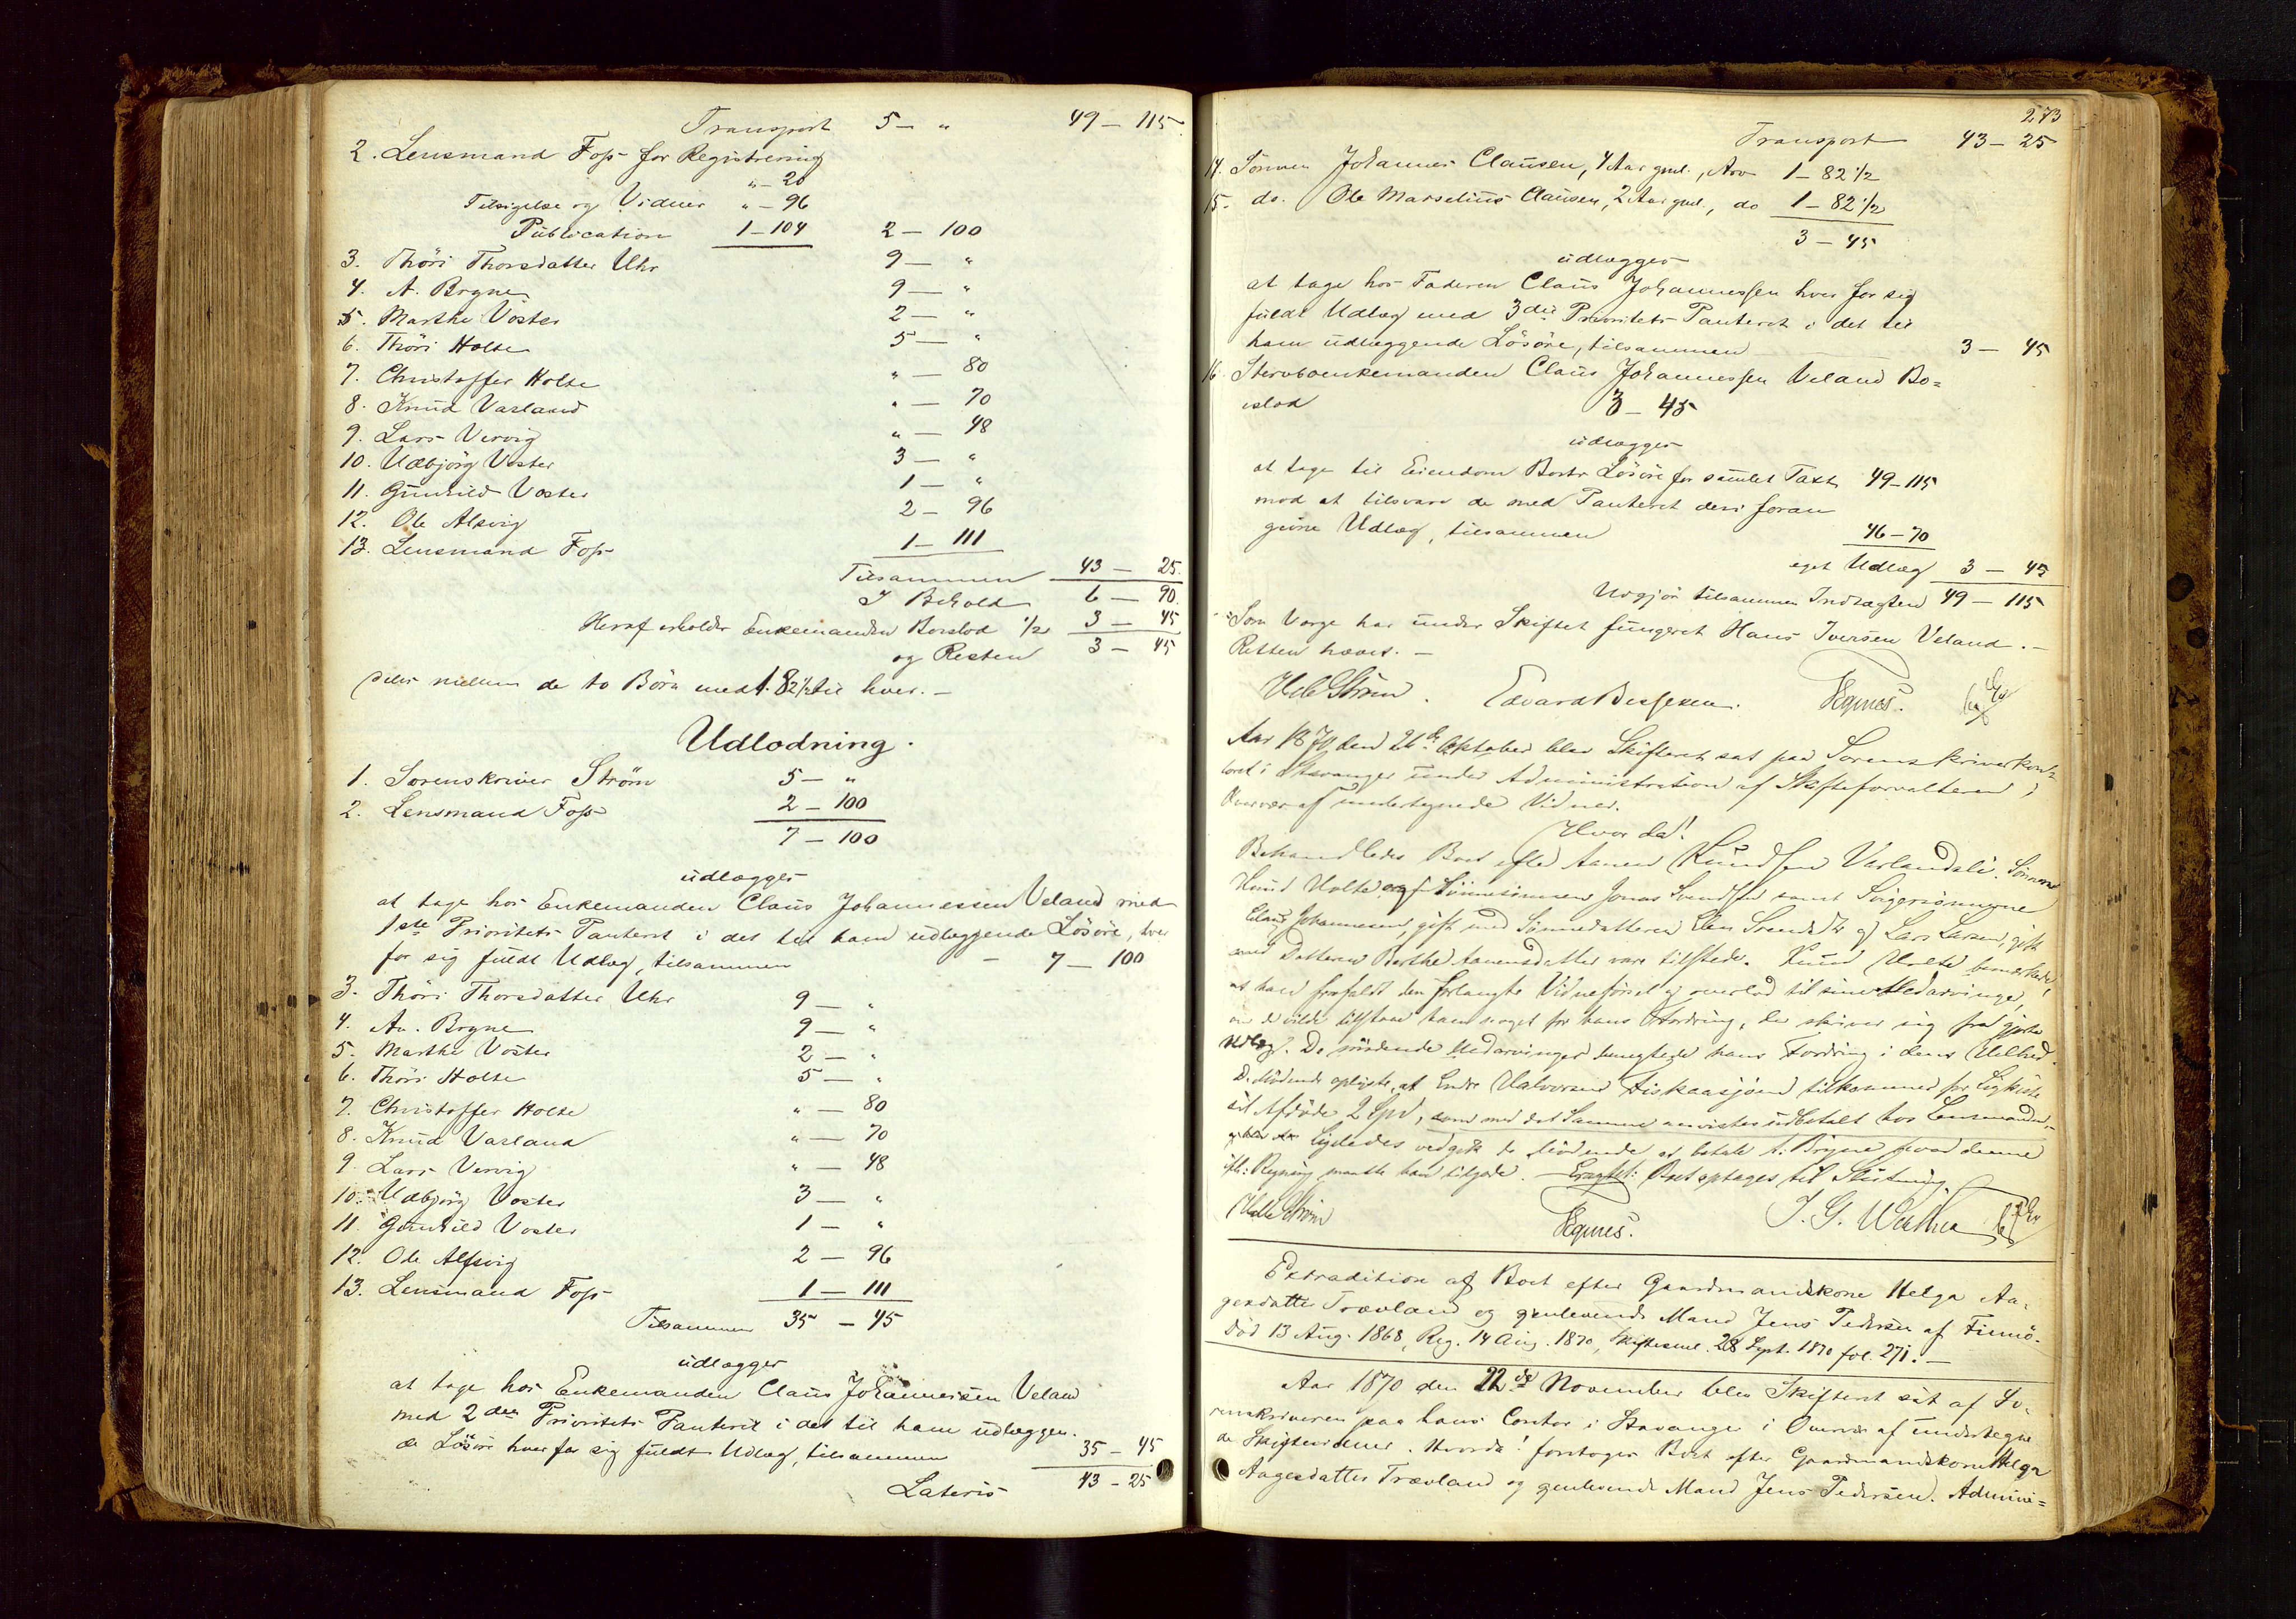 Transport 5 – „ 49 – 115.
2. Lensmand Foss for Registrering
„ – 20
Tilsigelse og Vidner „ – 96
Publication 1 – 104 2 – 100
3. Thöri Thorsdatter Uhr 9 – „
4. A. Bryne 9 – „
5. Marthe Voster 2 – „
6. Thöri Holte 5 – „
7. Christoffer Holte „ – 80
8. Knud Varland „ – 70
9. Lars Vervig „ – 48
10. Udbjörg Voster 3 – „
11. Gunhild Voster 1 – „
12. Ole Alsvig 2 – 96
13. Lensmand Foss 1 – 111
Tilsammen 43 – 25.
I Behold 6 – 90.
Heraf erholder Enkemanden Boeslod 1/2 3 – 45
og Resten 3 – 45
deles mellem de to Börn med 1.82 1/2 til hver. –
Udlodning.
1. Sorenskriver Ström 5 – „
2. Lensmand Foss 2 – 100
7 – 100
udlægges
at tage hos Enkemanden Claus Johannessen Veland med
1ste Prioritets Panteret i det til ham udlæggende Lösöre, hver
for sig fuldt Udlæg, tilsammen – 7 – 100
3. Thöri Thorsdatter Uhr 9 – „
4. An. Bryne 9 – „
5. Marthe Voster 2 – „
6. Thöri Holte 5 – „
7. Christoffer Holte „ – 80
8. Knud Varland „ – 70
9. Lars Vervig „ – 48
10. Udbjörg Voster 3 – „
11. Gunhild Voster 1 – „
12. Ole Alfsvig 2 – 96
13. Lensmand Foss 1 – 111
Tilsammen 35 – 45
udlægges
at tage hos Enkemanden Claus Johannessen Veland
med 2den Prioritets Panteret i det til ham udlæggen-
de Lösöre hver for sig fuldt Udlæg, tilsammen 35 – 45
Lateris 43 – 25
273
Transport 43 – 25
14. Sönnen Johannes Clausen, 4 Aar gml., Arv 1 – 82 1/2
15. do. Ole Marselius Clausen, 2 Aar gml., do 1 – 82 1/2
3 – 45
udlægges
at tage hos Faderen Claus Johannessen hver for sig
fuldt Udlæg med 3die Prioritets Panteret i det til
ham udlæggende Lösöre, tilsammen 3 – 45
16. Stervboenkemanden Claus Johannessen Veland Bo=
eslod 3 – 45
udlægges
at tage til Eiendom Boets Lösöre for samlet Taxt 49 – 115
mod at tilsvare de med Panteret deri foran
givne Udlæg, tilsammen 46 – 70
eget Udlæg 3 – 45
Udgjör tilsammen Indtægten 49 – 115
Som Verge har under Skiftet fungeret Hans Iversen Veland. –
Retten hævet. –
Ström. Edvard Hegnes.
Aar 1870 den 26de Oktober blev Skifteret sat paa Sorenskriverkon=
toret i Stavanger under Administration af Skifteforvalteren i
Overvær af undertegnede Vidner.
Hvor da!
Behandledes Boet efter Aanen Knudsen Varlandsli. Sönnen
Knud Holte og Sönnesönnen Jonas Svendsen samt Svigersönnerne
Claus Johannesen, gift med Sönnedatteren Elen Svendsdtr og Lars Larsen, gift
med Datteren Berthe Aanensdatter vare tilstede. Knud Holte bemærkede,
at han frafaldt den forlangte Vidneförsel og overlod til sine Medarvinger,
om de vilde tilstaa ham noget for hans Fordring, der skriver sig fra gjorte
Udlæg. De mödende Medarvinger benegtede hans Fordring i dens Helhed.
De Mödende oplyste, at Endre Halvorsen Fiskaasjöen tilkommer for Ligkiste
til Afdöde 2 Spd, som med det Samme anvistes udbetalt hos Lensmanden,
Ligeledes vedgik de Mödende at betale A. Bryne hvad denne
ifl. Regning maatte have tilgode. – Eragtet: Boet optages til Slutning.
Ström Hegnes. J. G. Werther
Extradition af Boet efter Gaardmandskone Helga Aa-
gesdatter Trævland og gjenlevende Mand Jens Pedersen af Finnö.
Död 13 Aug. 1868, Reg. 14 Aug. 1870, Skiftesml. 28 Sept. 1870 fol. 271. –
Aar 1870 den 22de November blev Skifteret sat af So-
renskriveren paa hans Contor i Stavanger i Overvær af undertegne
de Skiftevidner. Hvorda! foretoges Boet efter Gaardmandskone Helga
Aagesdatter Trævland og gjenlevende Mand Jens Pedersen. Admini=